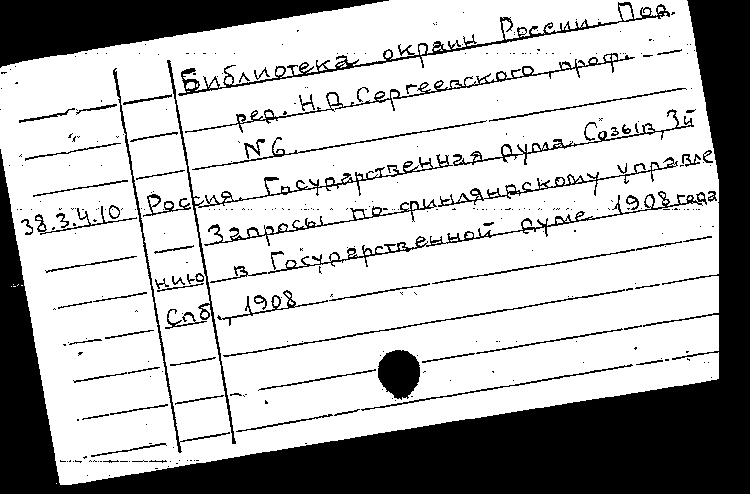 Библиотека окраин России. Под.
ред. Н.Д. Сергеевского, проф.
№6.
38.3.4.10 Россия. Государственная дума. Созыв, 3й
Запросы по финляндскому управле
нию в Государственной думе 1908 года
Спб., 1908